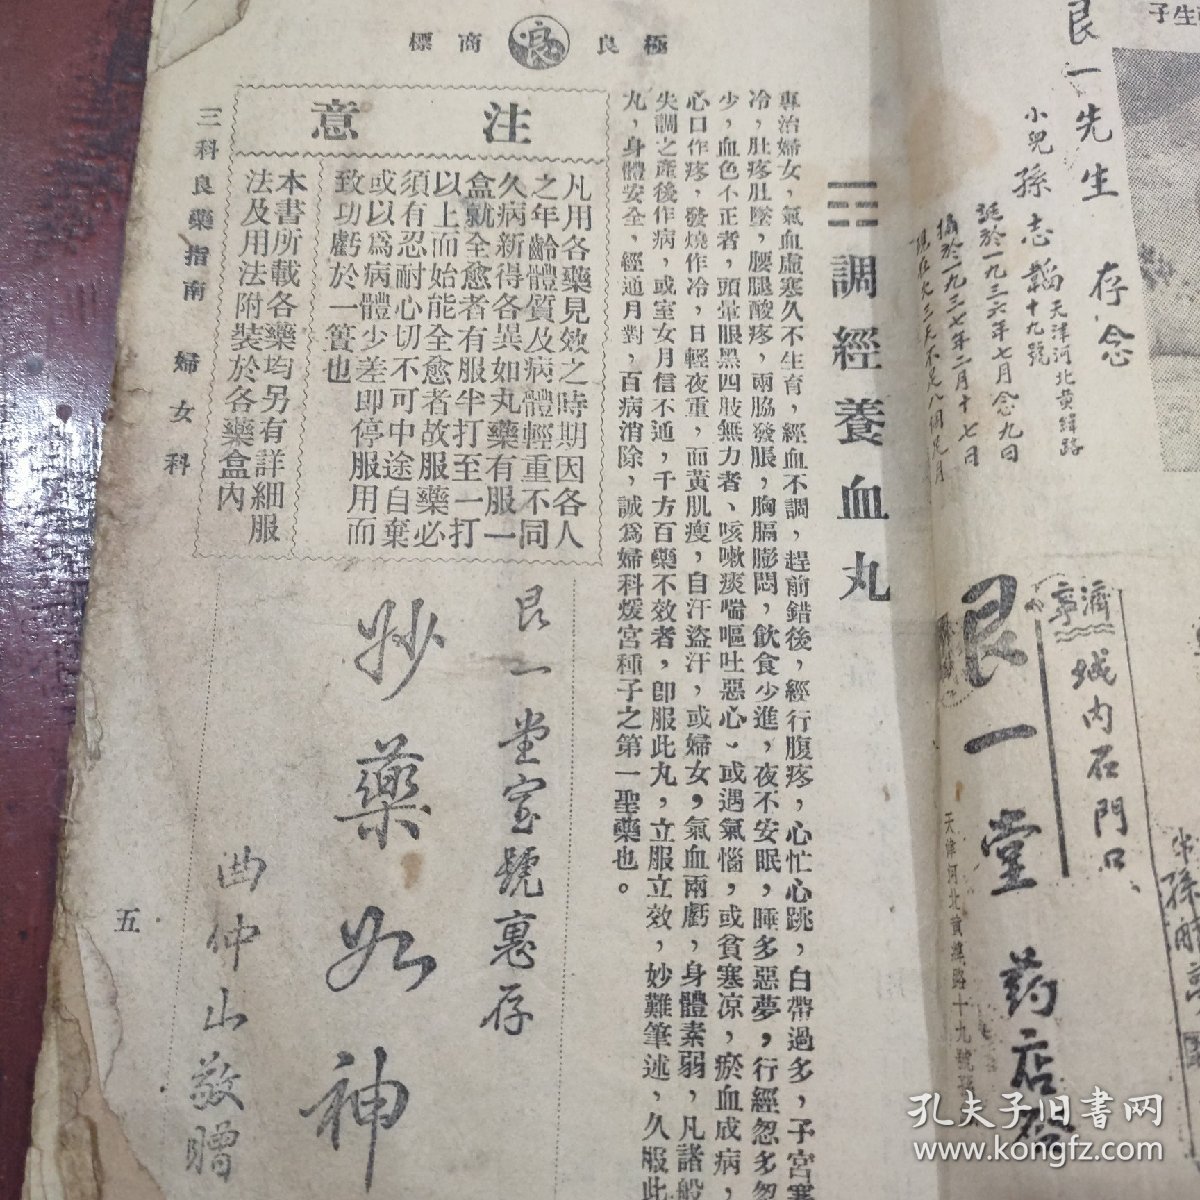 極良商標
良
艮一先生 存念
小兒孫志韜
天津河北黃緯路
十九號
誕於一九三六年七月念九日
攝於一九三七年二月十七日
濟
城内石門口
艮一堂药店
調經養血丸
專治婦女，氣血虛寒久不生育，經血不調，趕前錯後，經行腹疼，心忙心跳，白帶過多，子宮寒
冷，肚疼肚墜，腰腿酸疼，兩脇發脹，胸膈膨悶，飲食少進，夜不安眠，睡多惡夢，行經忽多忽
少，血色不正者，頭暈眼黑四肢無力者、咳嗽痰喘嘔吐惡心、或遇氣惱，或貧寒凉，瘀血成病，
心口作疼，發燒作冷，日輕夜重，面黃肌瘦，自汗盜汗，或婦女，氣血兩虧，身體素弱，凡諸般
失調之產後作病，或室女月信不通，千方百藥不效者，卽服此丸，立服立效，妙難筆述，久服此
丸，身體安全，經通月對，百病消除，誠爲婦科煖宮種子之第一聖藥也。
注意
凡用各藥見效之時期因各人
之年齡體質及病體輕重不同
久病新得各異如丸藥有服一
盒就全愈者有服半打至一打
以上而始能全愈者故服藥必
須有忍耐心切不可中途自棄
或以爲病體少差即停服用而
致功虧於一簣也
本書所載各藥均另有詳細服
法及用法附裝於各藥盒內
艮一堂寳號惠存
妙藥如神
曲仲山敬贈
三科良藥指南 婦女科
五
孔夫子旧书网
www.kongfz.com